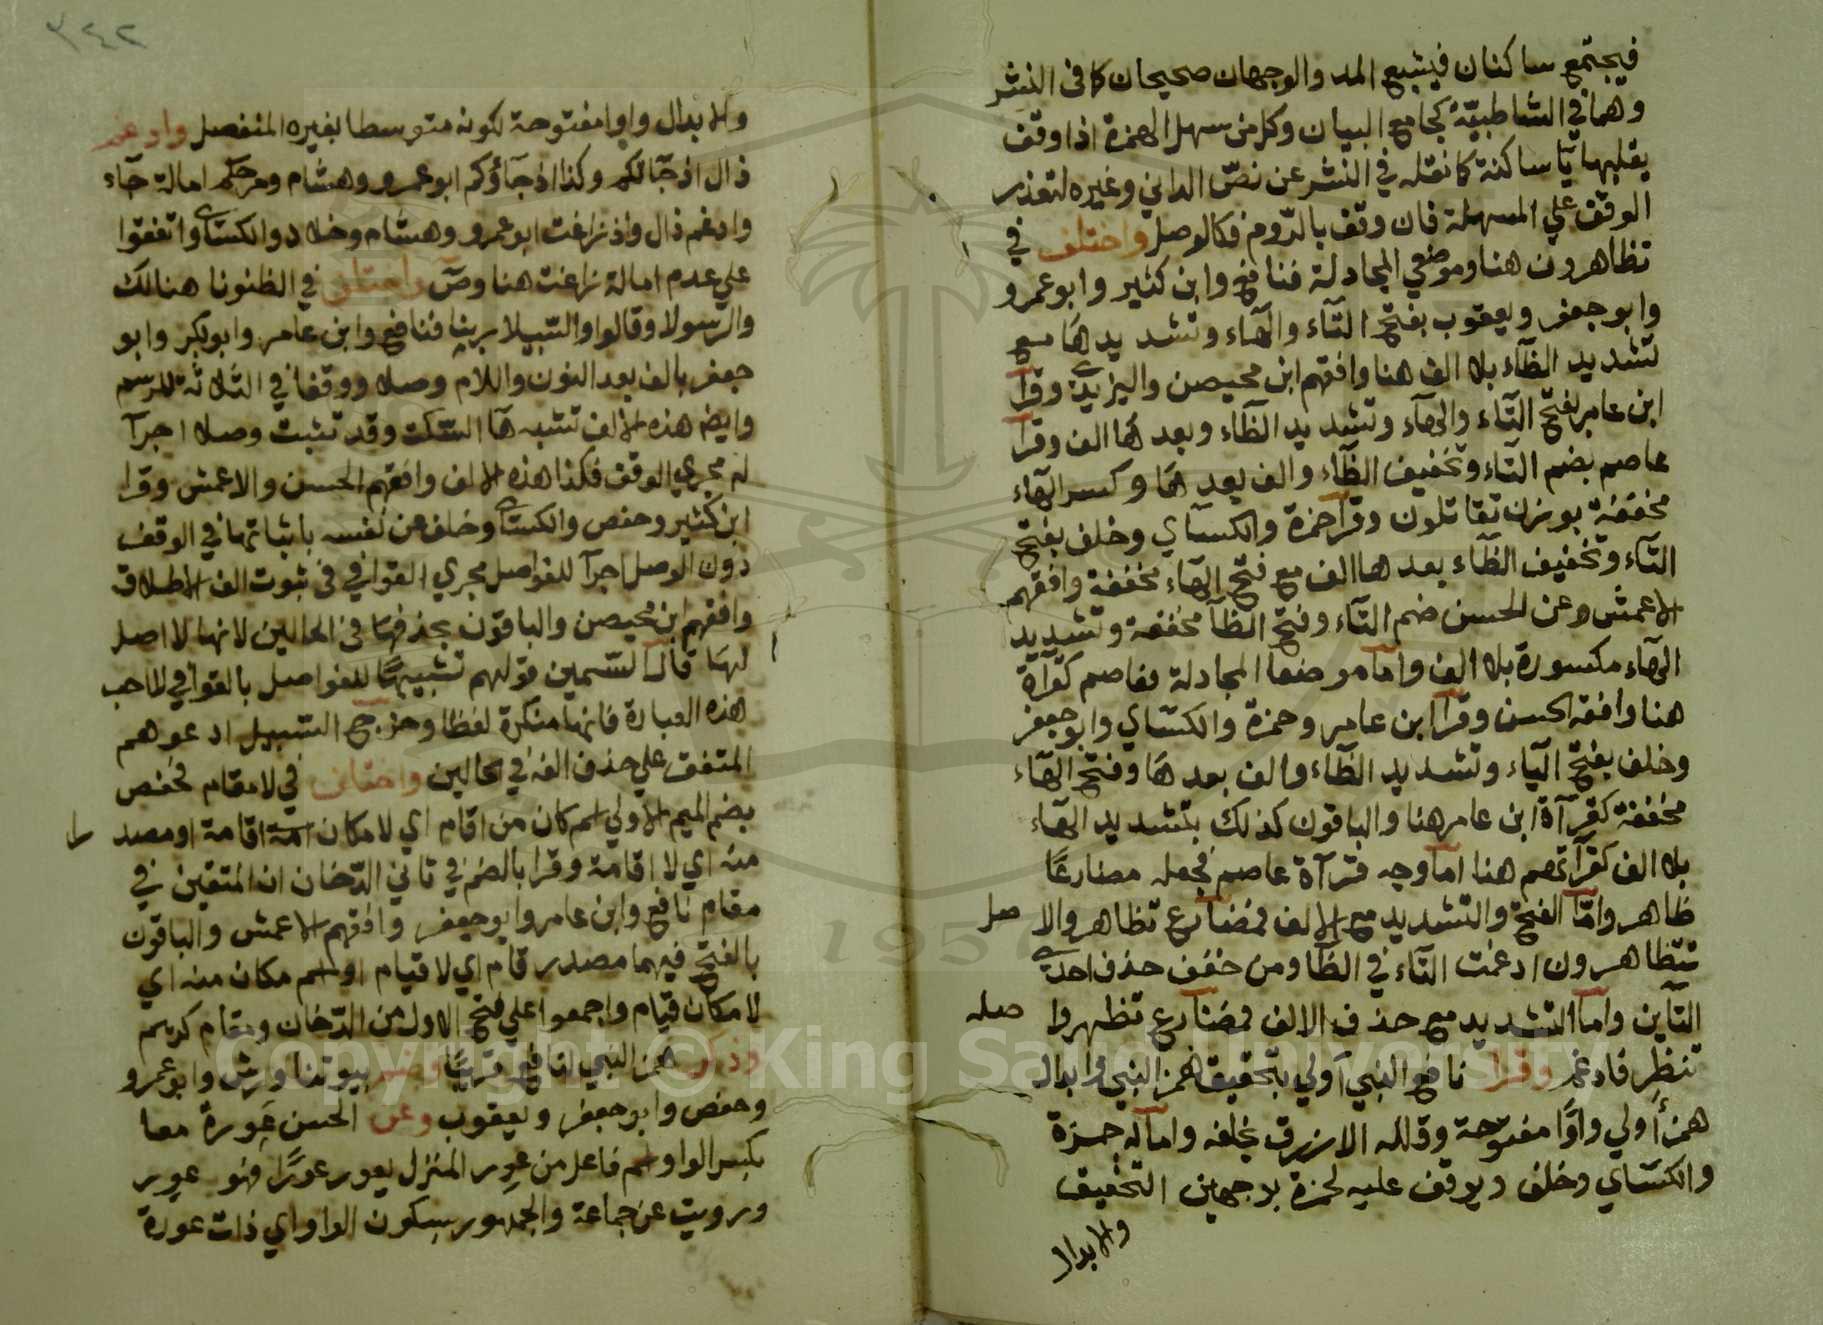 فيجتمع ساكنان فيشبع المد والوجهان صحيحان كما في النشر
وهما في الشاطبيّة كجامع البيان وكل من سهل الهمزة اذا وقف
يقلبها يآ ساكنة كما نقله في النشر عن نصّ الداني وغيره لتعذر
الوقف علي المسهلة فان وقف بالرّوم فكالوصل واختلف في
تظاهرون هنا وموضعي المجادلة فنافع وابن كثير وابو عمرو
وابو جعفر ويعقوب بفتح التآء والهآء وتشديدها مع
تشديد الظآء بلا الف هنا وافقهم ابن محيصن واليزيدي وقرآ
ابن عامر بفتح التآء والهآء وتشديد الظآء وبعدها الف وقرآ
عاصم بضم التآء وتخفيف الظآء والف بعدها وكسر الهآء
مخففة بوزن تقاتلون وقرآ حمزة والكسآي وخلف بفتح
التآء وتخفيف الظآء بعدها الف مع فتح الهآء مخففة وافقهم
الاعمش وعن الحسن ضم التآء وفتح الظآ مخففة وتشديد
الهآء مكسورة بلا الف وامآ موضعا المجادلة فعاصم كقرآة
هنا وافقه الحسن وقرآ ابن عامر وحمزة والكسآي وابو جعفر
وخلف بفتح اليآء وتشديد الظآء والف بعدها وفتح الهآء
مخففة كقرآة ابن عامر هنا والباقون كذلك بتشديد الهآء
بلا الف كقرآتهم هنا امآ وجه قرآة عاصم فجعله مضارعًا
ظاهر وامّآ الفتح والتشديد مع الالف فمضارع تظاهر والا صل
تتظاهرون ادغمت التآء في الظآ ومن خفف حذف احدي
التآين وامآ التشديد مع حذف الالف فمضارع تظهروا صله
تتظهر فادغم وقرا نافع النبي آولي بتحقيق همز النبي وابدال
همز أولي واوًا مفتوحة وقلله الازرق بخلفه واماله حمزة
والكسآي وخلف ويوقف عليه لحمزة بوجهين التحقيق
والابدال
٣٤٢
والابدال واوا مفتوحة لكونه متوسطا بغيره المنفصل وادغم
ذال اذ جآتكم وكذا اذ جآؤكم ابو عمرو وهشام ومر حكم امالة جآء
وادغم ذال واذ زاغت ابو عمرو وهشام وخلاد والكسآي واتفقوا
علي عدم امالة زاغت هنا وصۤ واختلف في الظنونا هنالك
والرّسولا وقالوا والسّبيلا ربنا فنافع وابن عامر وابو بكر وابو
جعفر بالف بعد النون واللام وصلا ووقفا في الثلاثة للرسم
وايضا هذه الالف تشبه هآ السّكت وقد تثبت وصلا اجرآ
له مجري الوقف فكذا هذه الالف وافقهم الحسن والاعمش وقرا
ابن كثير وحفص والكسآي وخلف عن نفسه باثباتها في الوقف
دون الوصل اجرآ للفواصل مجري القوافي في ثبوت الف الاطلاق
وافقهم ابن محيصن والباقون بحذفها في الحالين لانها لا اصل
لها قال السّمين قولهم تشبيهًا للفواصل بالقوافي لا احب
هذه العبارة فانها منكرة لفظا وخرج السّبيل ادعوهم
المتفق علي حذف الفه في الحالين واختلف في لا مقام فحفص
بضم الميم الاولي اسم كان من اقام اي لا مكان اقامة او مصدر
منه اي لا اقامة وقرا بالضم في ثاني الدّخان ان المتقين في
مقام نافع وابن عامر وابو جعفر وافقهم الاعمش والباقون
بالفتح فيهما مصدر قام اي لا قيام او اسم مكان منه اي
لا مكان قيام واجمعوا علي فتح الاول من الدّخان ومقام كريم
وذكر همز النبي لنافع قريبًا وضم بيوتنا ورش وابو عمرو
وحفص وابو جعفر ويعقوب وعن الحسن عورة معا
بكسر الواو اسم فاعل من عور المنزل يعور عورًا فهو عور
ورويت عن جماعة والجمهور بسكون الواو اي ذات عورة
Copyright © King Saud University
1957